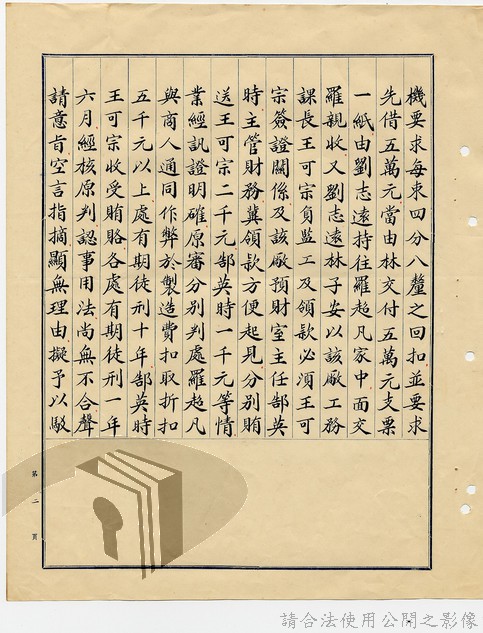 機要求每束四分八釐之回扣並要求
先借五萬元當由林交付五萬元支票
一紙由劉志遠持往羅超凡家中面交
羅親收又劉志遠林子安以該廠工務
課長王可宗負監工及領款必須王可
宗簽證關係及該廠預財室主任郜英
時主管財務冀領款方便起見分別賄
送王可宗二千元郜英時一千元等情
業經訊證明確原審分別判處羅超凡
與商人通同作弊於製造費扣取折扣
五千元以上處有期徒刑十年郜英時
王可宗收受賄賂各處有期徒刑一年
六月經核原判認事用法尚無不合聲
請意旨空言指摘顯無理由擬予以駁
第二頁
請合法使用公開之影像